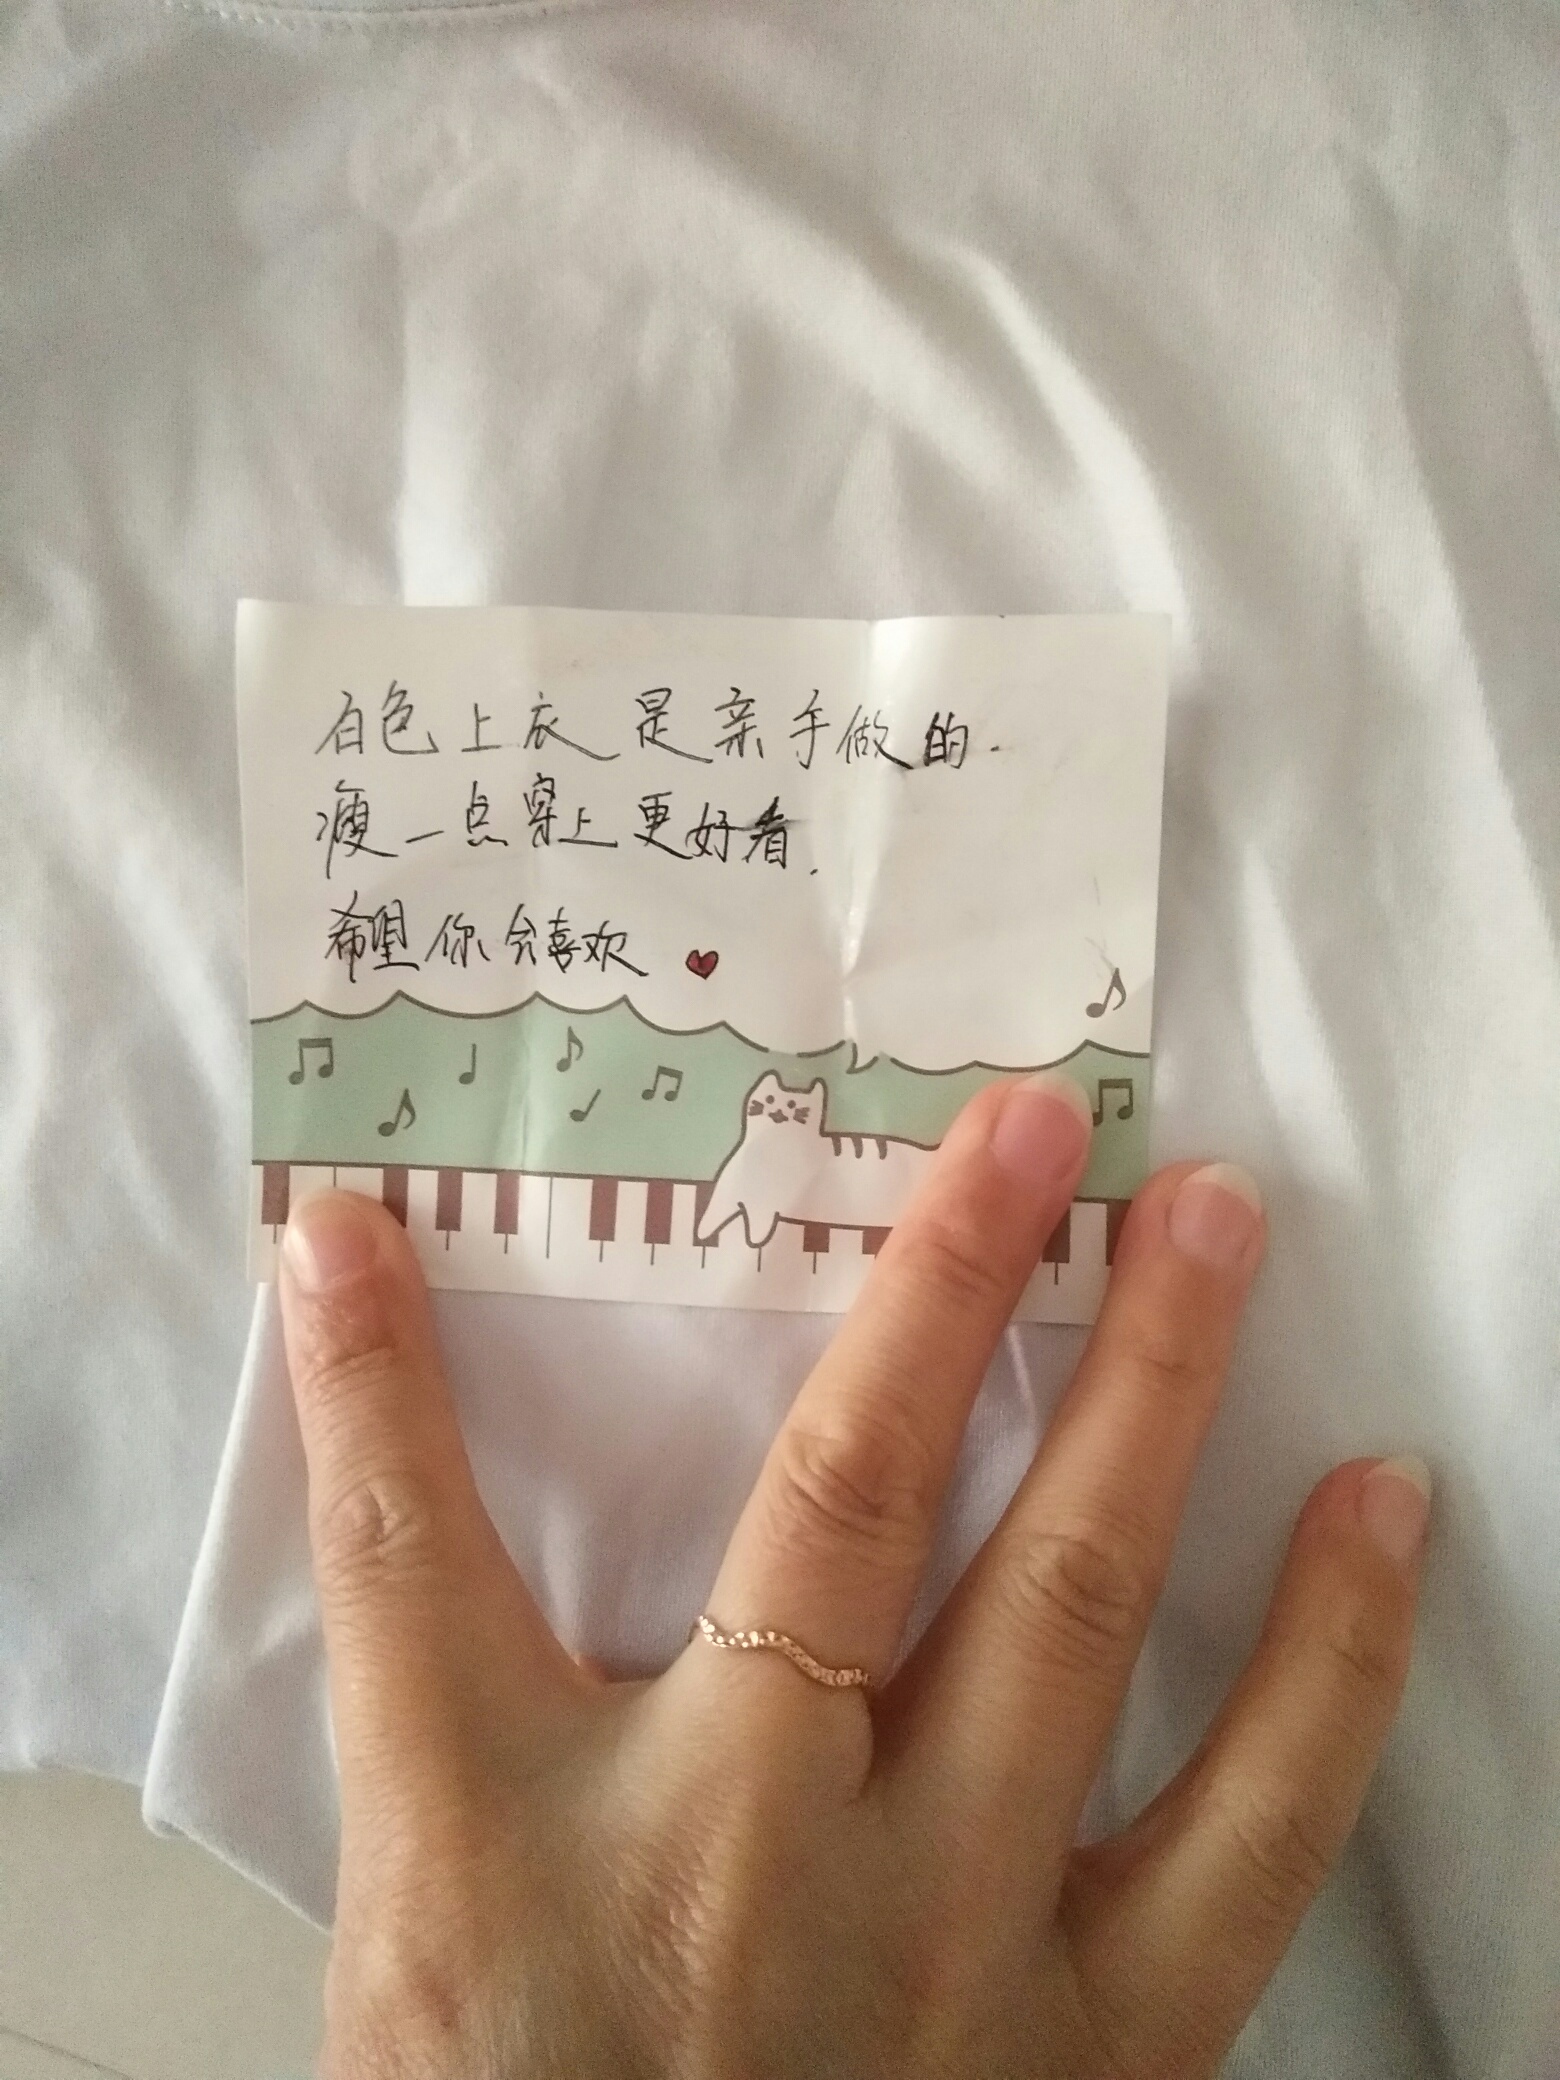 白色上衣是亲手做的.
瘦一点穿上更好看.
希望你会喜欢